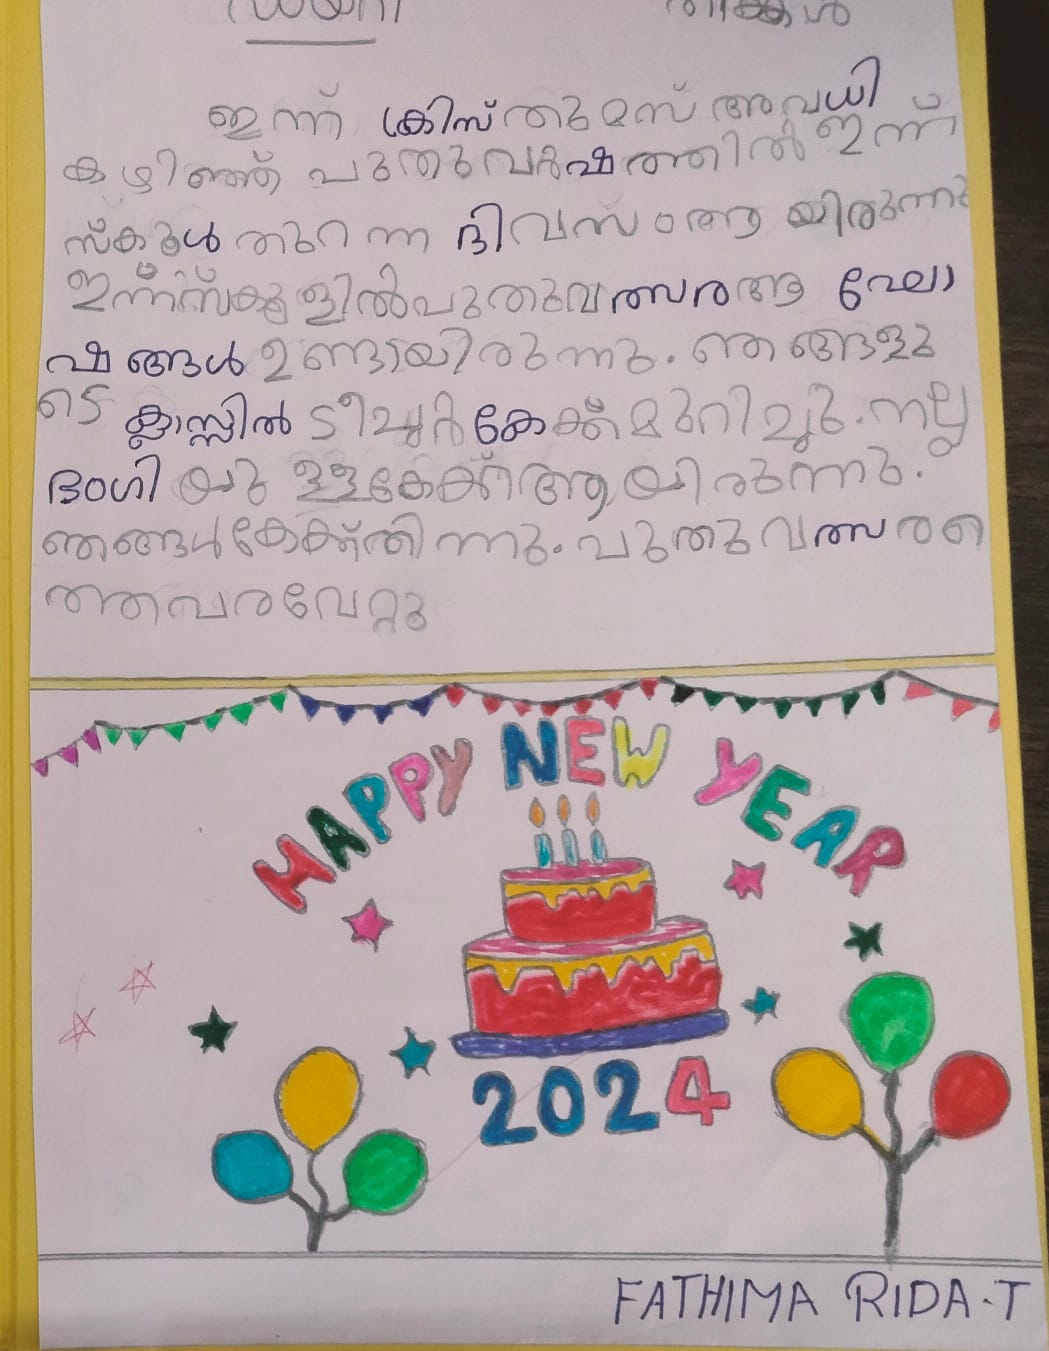 ഡയറി തിങ്കൾ
ഇന്ന് ക്രിസ്തുമസ് അവധി
കഴിഞ്ഞ് പുതുവർഷത്തിൽ ഇന്ന്
സ്കൂൾ തുറന്ന ദിവസം ആയിരുന്നു
ഇന്ന് സ്കൂളിൽ പുതുവത്സര ആഘോ
ഷങ്ങൾ ഉണ്ടായിരുന്നു. ഞങ്ങളു
ടെ ക്ലാസ്സിൽ ടീച്ചർ കേക്ക് മുറിച്ചു. നല്ല
ഭംഗിയുള്ള കേക്ക് ആയിരുന്നു.
ഞങ്ങൾ കേക്ക് തിന്നു. പുതുവത്സരത്തെ
വരവേറ്റു
HAPPY NEW YEAR
2024
FATHIMA RIDA.T